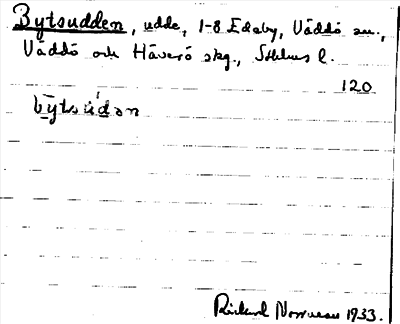 Bytsudden, udde, 1-8 Edeby, Väddö sn.,
Väddö och Häverö skg., Sthlms l.
120
bȳtsu̇́dən
Rickard Norrman 1933.